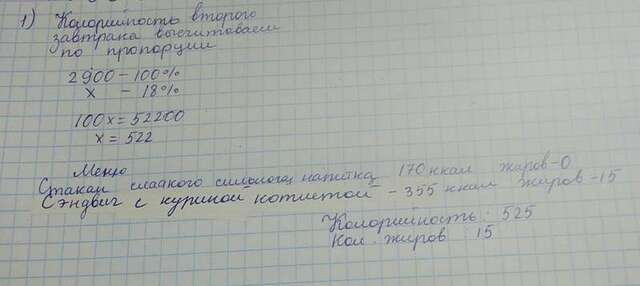 1) Калорийность второго
завтрака высчитываем
по пропорции
2900 - 100%
x - 18%
100x = 52200
x = 522
Меню
Стакан сладкого напитка 170 ккал жиров - 0
Сэндвич с куриной котлетой - 355 ккал жиров - 15
Калорийность: 525
Кол. жиров: 15